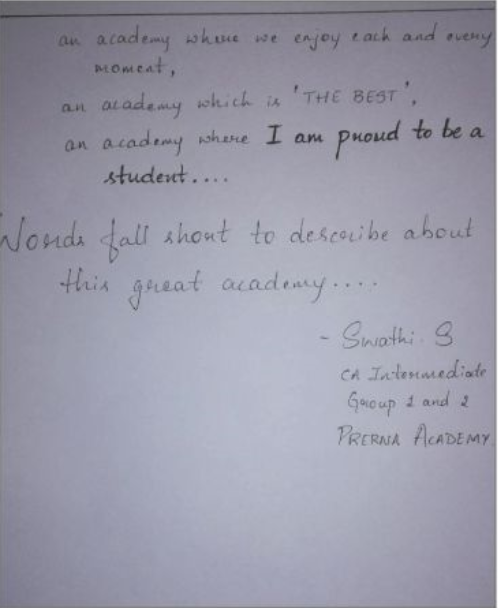 an academy where we enjoy each and every
moment,
an academy which is 'THE BEST',
an academy where I am proud to be a
student....
Words fall short to describe about
this great academy....
- Swathi. S
CA Intermediate
Group 1 and 2
PRERNA ACADEMY